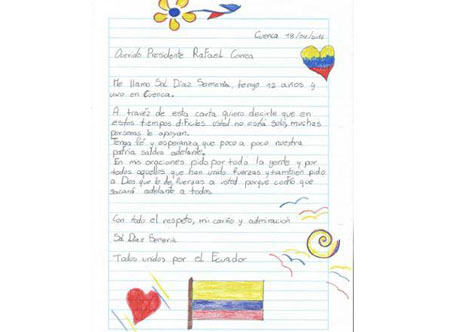 Cuenca 18/04/2016
Querido Presidente Rafael Correa
Me llamo Sol Díaz Semeria, tengo 12 años y
vivo en Cuenca.
A través de esta carta quiero decirle que en
estos tiempos difíciles usted no está solo, muchas
personas le apoyan.
Tengo fé y esperanza que poco a poco nuestra
patria saldrá adelante.
En mis oraciones pido por toda la gente y por
todos aquellos que han unido fuerzas y también pido
a Dios que le de fuerzas a usted porque confío que
sacará adelante a todos.
Con todo el respeto, mi cariño y admiración
Sol Díaz Semeria
Todos unidos por el Ecuador